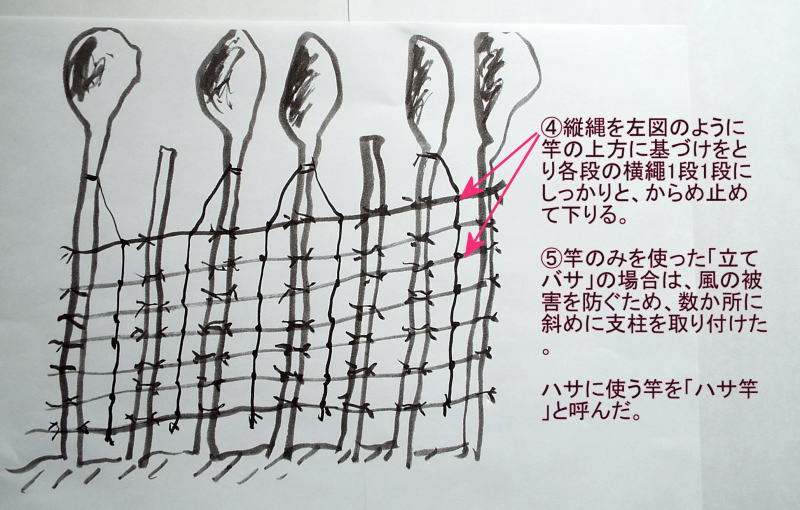 ④縦縄を左図のように
竿の上方に基づけをと
り各段の横縄1段1段に
しっかりと、からめ止め
て下りる。
⑤竿のみを使った「立て
バサ」の場合は、風の被
害を防ぐため、数か所に
斜めに支柱を取り付けた
。
ハサに使う竿を「ハサ竿
」と呼んだ。